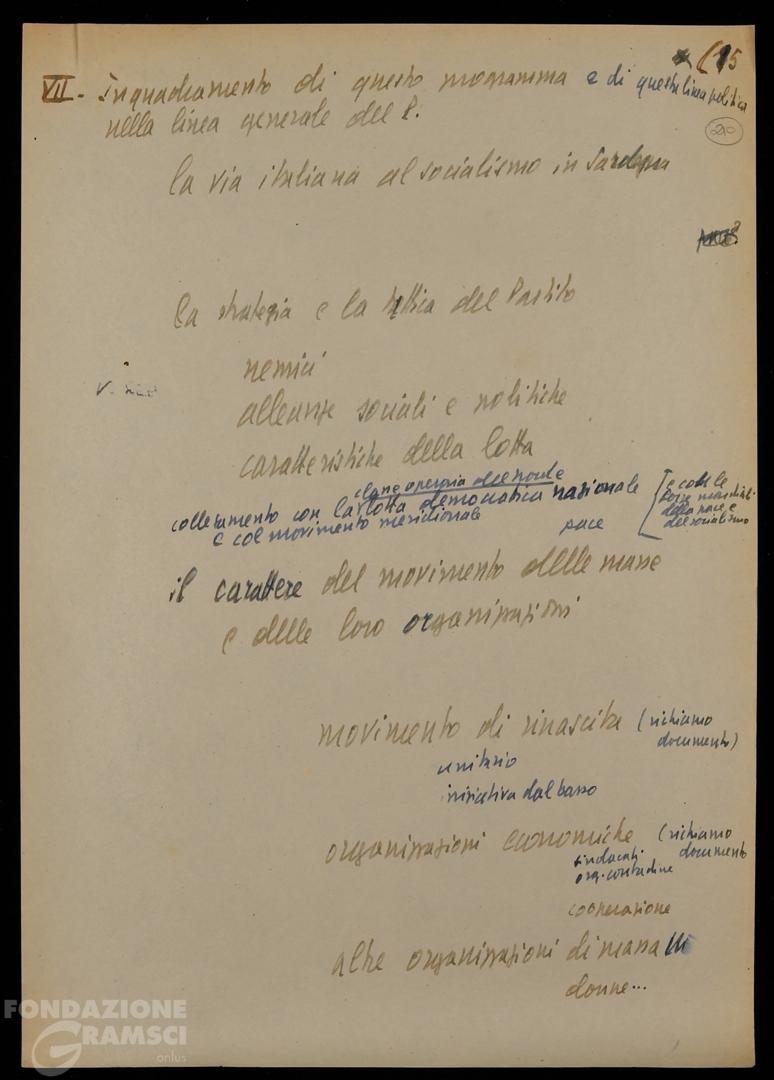 (15
VII - Inquadramento di questo programma e di questa linea politica
nella linea generale del P.
20
la via italiana al socialismo in Sardegna
la strategia e la tattica del Partito
nemici
alleanze sociali e politiche
caratteristiche della lotta
classe operaia del nord e
collegamento con la lotta democratica nazionale
e col movimento meridionale
pace
e colle
forze mondiali
della pace e
del socialismo
il carattere del movimento delle masse
e delle loro organizzazioni
movimento di rinascita (richiamo
documento)
unitario
iniziativa dal basso
organizzazioni economiche (richiamo
documento
sindacati
org. contadine
cooperazione
altre organizzazioni di massa
donne...
FONDAZIONE
GRAMSCI
onlus